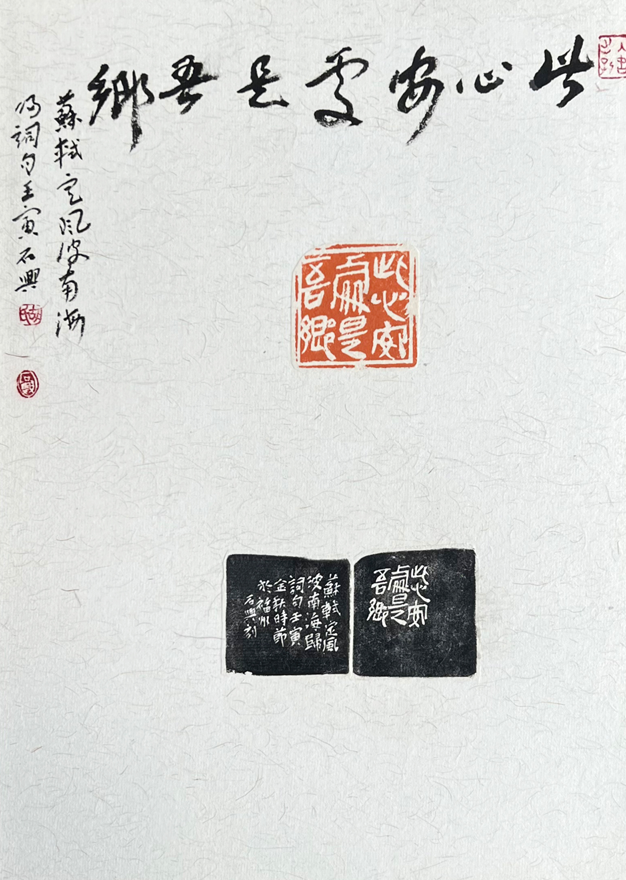 此心安處是吾鄉
蘇軾定風波南海
歸詞句壬寅石興
此心安
處是
吾鄉
此心安
處是
吾鄉
蘇軾定風
波南海歸
詞句壬寅
金秋時節
於福州
石興刻